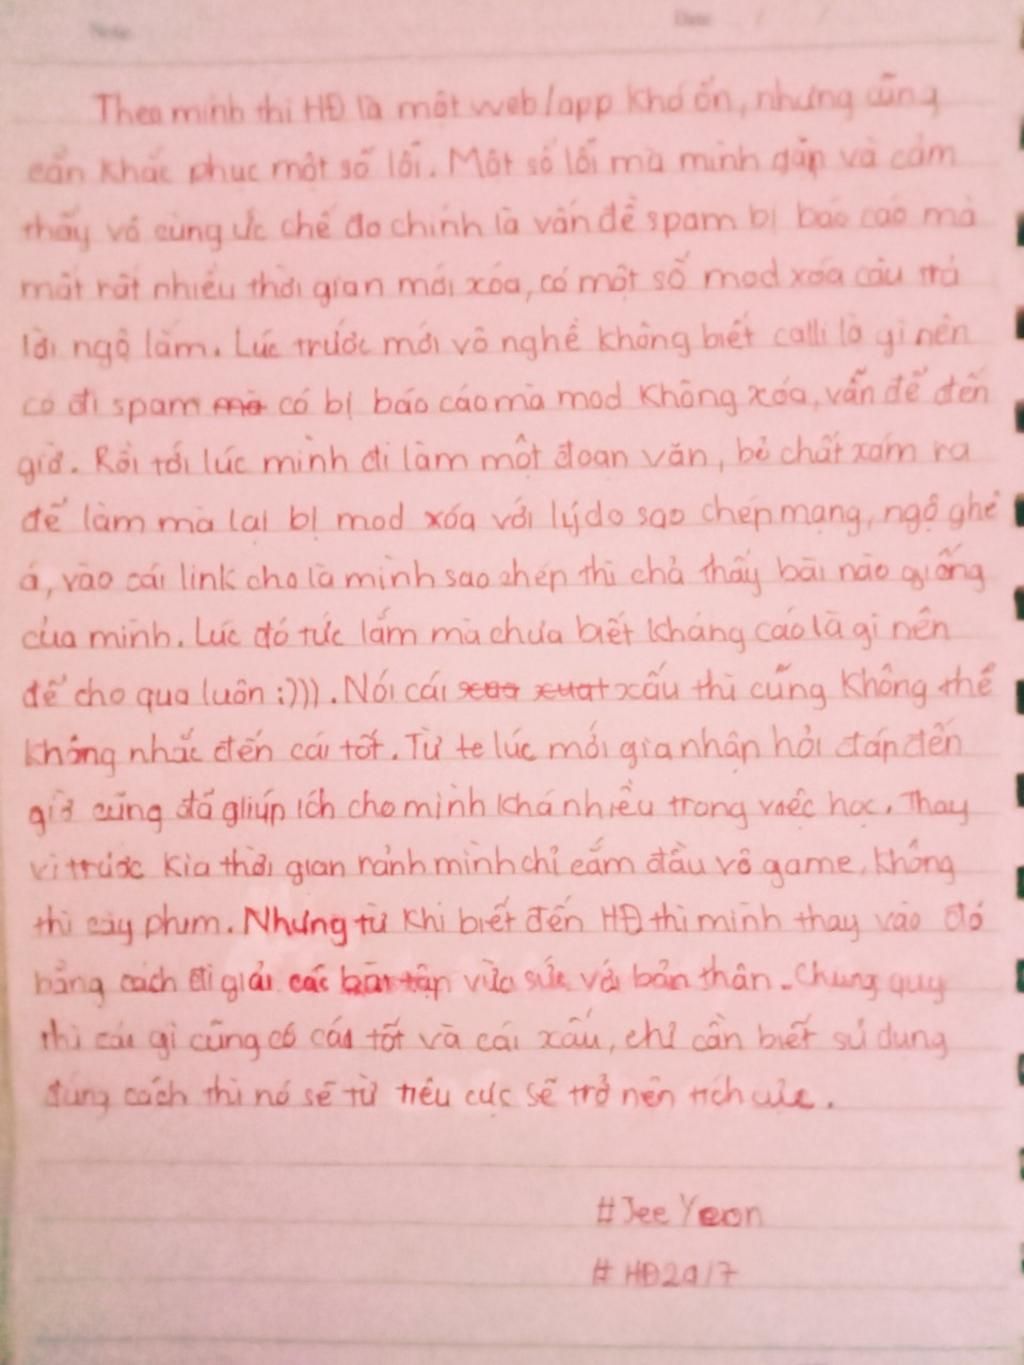 Note Date / /
Theo mình thì HĐ là một web/app khá ổn, nhưng cũng
cần khắc phục một số lỗi. Một số lỗi mà mình gặp và cảm
thấy vô cùng ức chế đó chính là vấn đề spam bị báo cáo mà
mất rất nhiều thời gian mới xóa, có một số mod xóa câu trả
lời ngộ lắm. Lúc trước mới vô nghề không biết calli là gì nên
có đi spam mà có bị báo cáo mà mod không xóa, vẫn để đến
giờ. Rồi tới lúc mình đi làm một đoạn văn, bỏ chất xám ra
để làm mà lại bị mod xóa với lý do sao chép mạng, ngộ ghê
á, vào cái link cho là mình sao chép thì chả thấy bài nào giống
của mình. Lúc đó tức lắm mà chưa biết kháng cáo là gì nên
để cho qua luôn :))). Nói cái xấu thì cũng không thể
không nhắc đến cái tốt. Từ lúc mới gia nhập hỏi đáp đến
giờ cũng đã gliúp ích cho mình khá nhiều trong việc học. Thay
vì trước kia thời gian rảnh mình chỉ cắm đầu vô game, không
thì cày phim. Nhưng từ khi biết đến HĐ thì mình thay vào đó
bằng cách đi giải các bài tập vừa sức với bản thân. Chung quy
thì cái gì cũng có cái tốt và cái xấu, chỉ cần biết sử dụng
đúng cách thì nó sẽ từ tiêu cực sẽ trở nên tích cực.
#JeeYeon
#HĐ2017